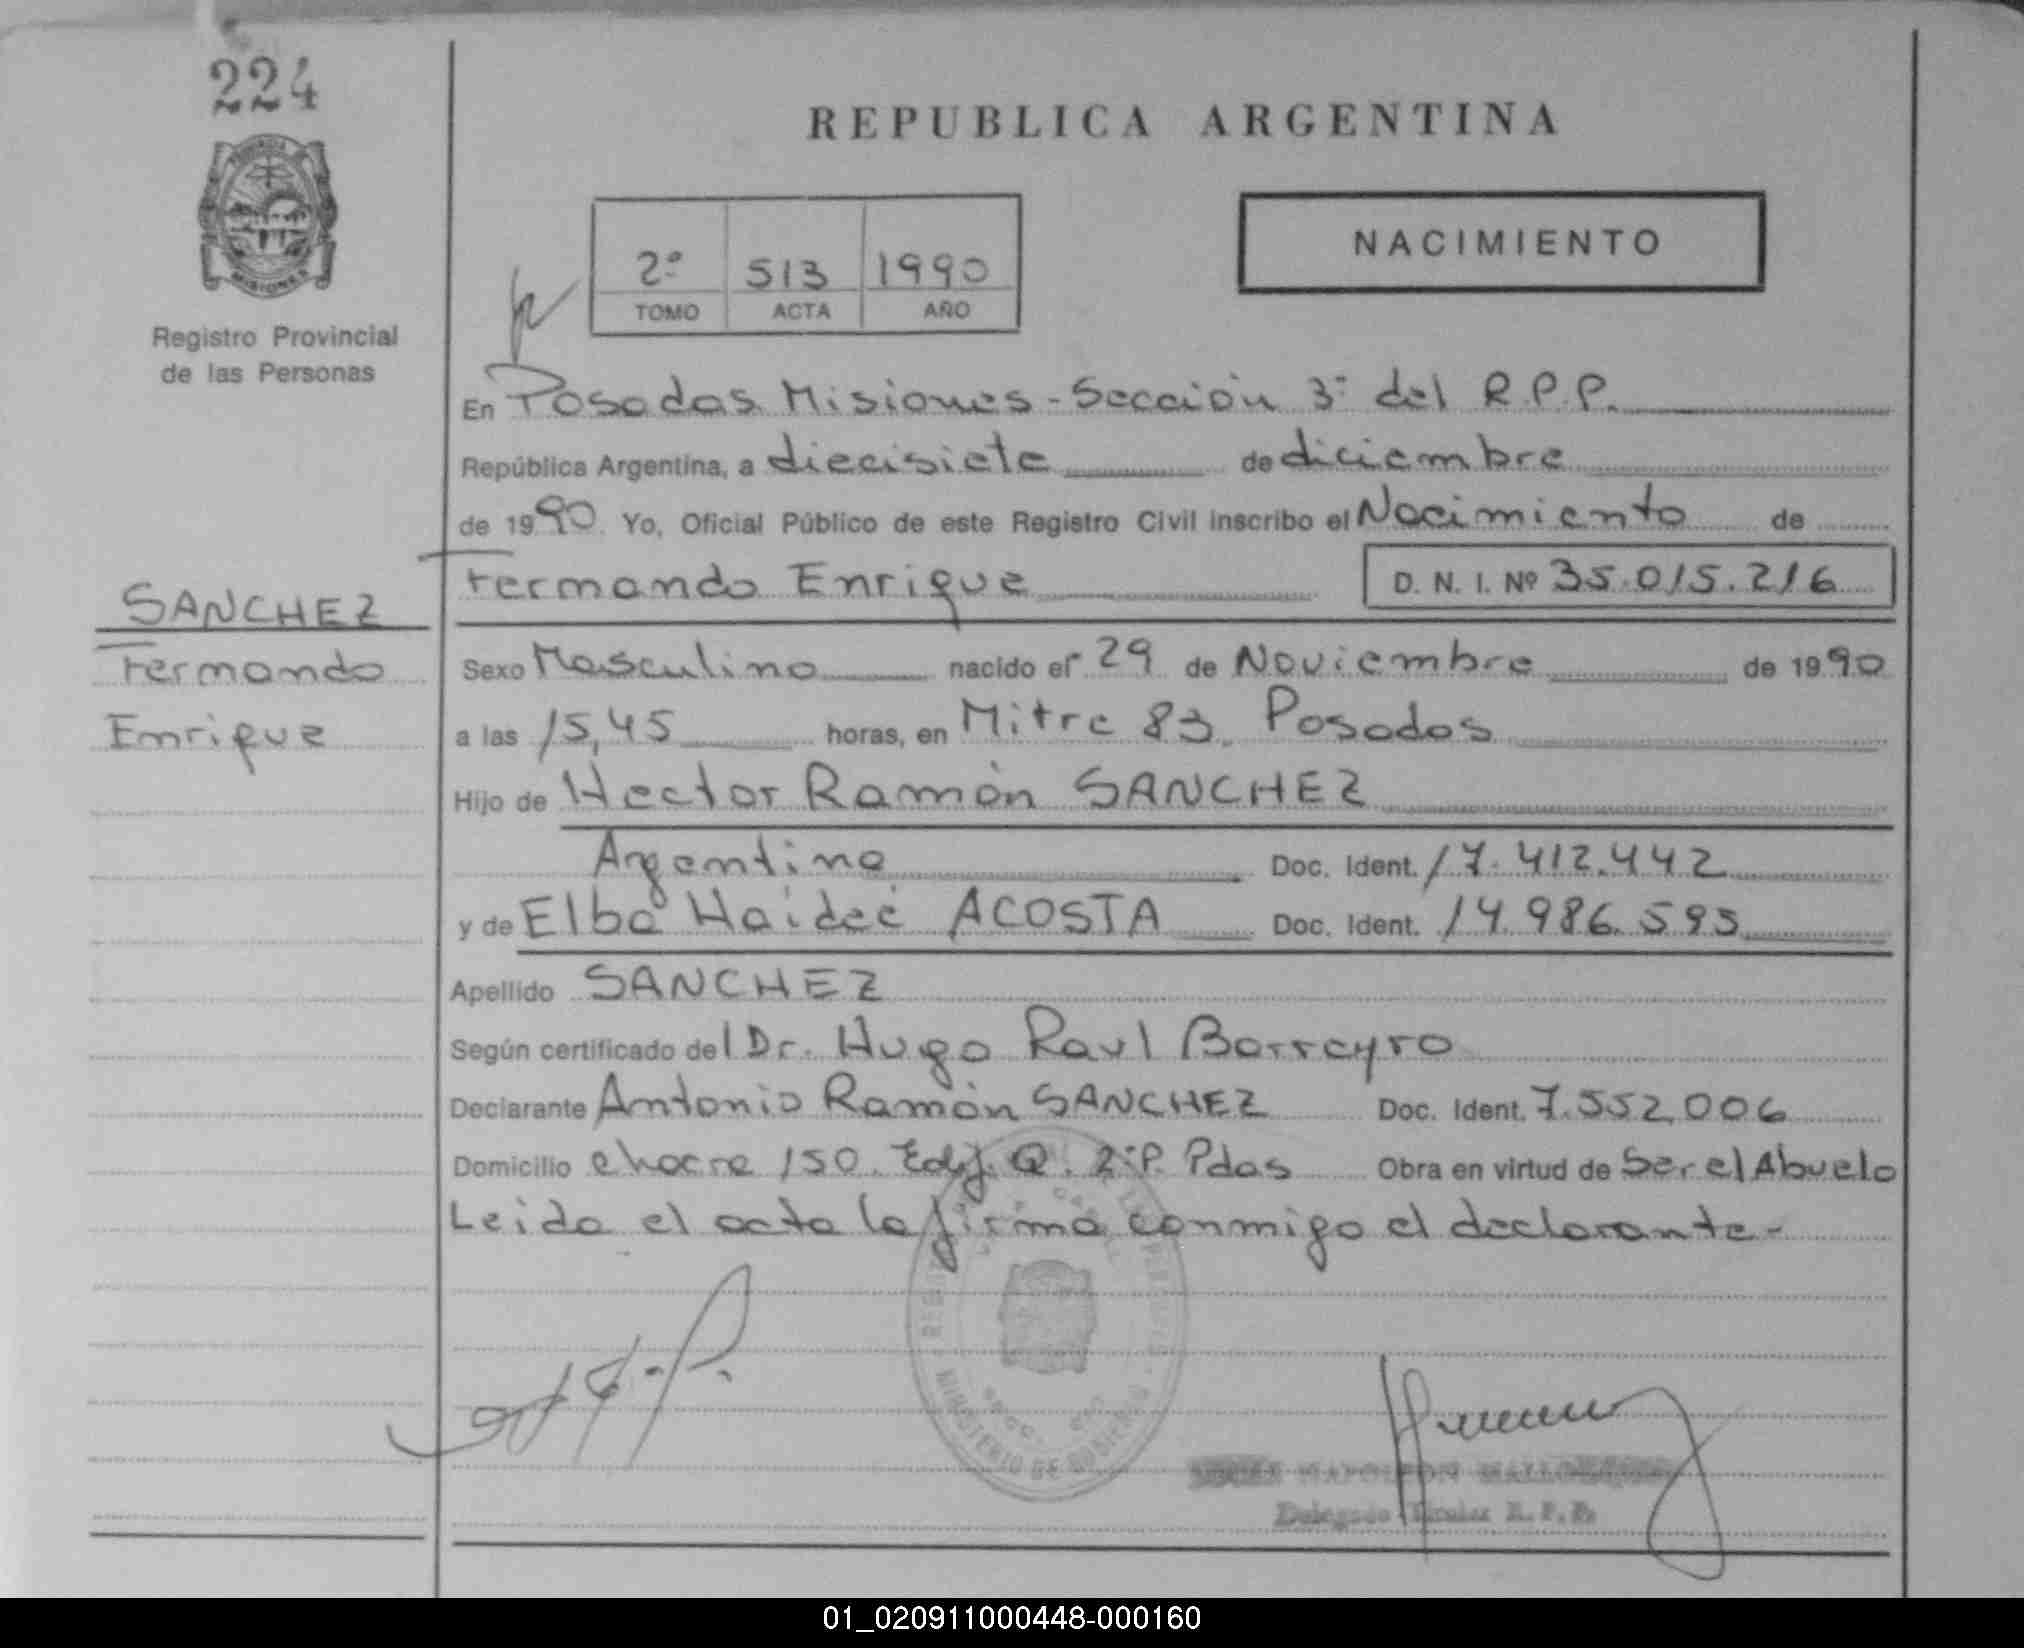 224
REPUBLICA ARGENTINA
MISIONES
Registro Provincial
de las Personas
2º 513 1990
TOMO ACTA AÑO
NACIMIENTO
En Posadas Misiones - Sección 3º del R.P.P.
República Argentina, a diecisiete de diciembre
de 1990. Yo, Oficial Público de este Registro Civil inscribo el Nacimiento de
Fernando Enrique D. N. I. Nº 35.015.216
SANCHEZ
Fernando
Enrique
Sexo Masculino nacido el 29 de Noviembre de 1990
a las 15,45 horas, en Mitre 83. Posadas
Hijo de Hector Ramón SANCHEZ
Argentino Doc. Ident. 17.412.442
y de Elba Haideé ACOSTA Doc. Ident. 14.986.593
Apellido SANCHEZ
Según certificado del Dr. Hugo Raul Barreyro
Declarante Antonio Ramón SANCHEZ Doc. Ident. 7.552.006
Domicilio chacra 150. Edif. Q. 2º P. Pdas Obra en virtud de Ser el Abuelo
Leida el acta la firma conmigo el declarante -
MINISTERIO DE GOBIERNO
NAPOLEON
Delegado Titular R. P. P.
01_020911000448-000160